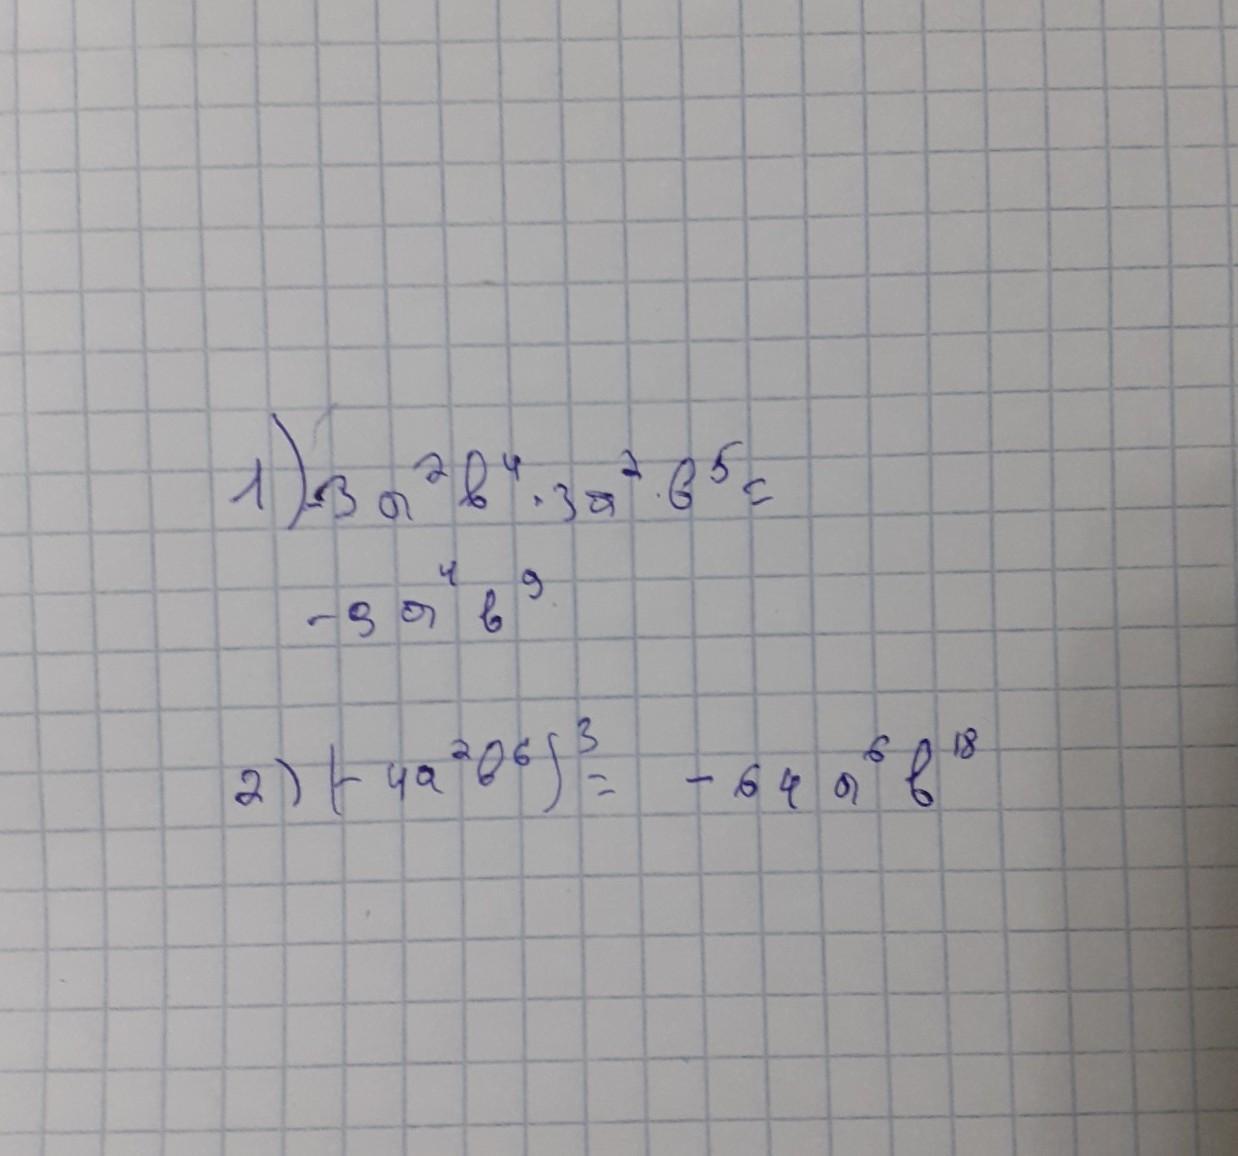 1) -3a²b⁴ · 3a² · b⁵ =
-9a⁴b⁹
2) (-4a²b⁶)³ = -64a⁶b¹⁸